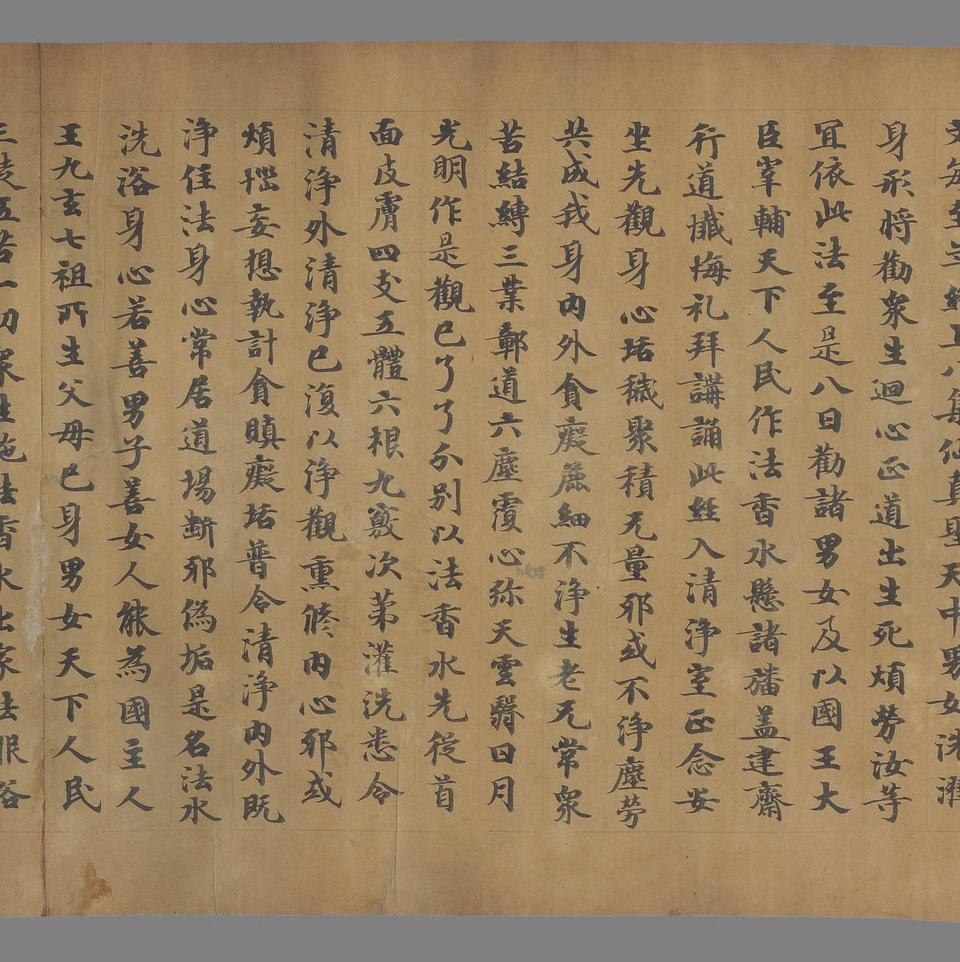 身形将勸衆生迴心正道出生死煩勞汝等
冝依此法至是八日勸諸男女及以國王大
臣宰輔天下人民作法香水懸諸旛盖建齋
行道懺悔礼拜講誦此經入清淨室正念安
坐先觀身心垢穢聚積无量邪或不淨塵勞
共成我身内外貪癡麁細不淨生老无常衆
苦結縛三業鄣道六塵覆心弥天雲翳日月
光明作是觀已了了分別以法香水先從首
面皮膚四支五體六根九竅次苐灌洗悉令
清淨外清淨已復以淨觀熏修内心邪或
煩惱妄想執計貪瞋癡垢普令清淨内外既
淨住法身心常居道場断邪偽垢是名法水
洗浴身心若善男子善女人能為國主人
王九玄七祖所生父母已身男女天下人民
三徒五苦一切衆生施法香水出家法服浴